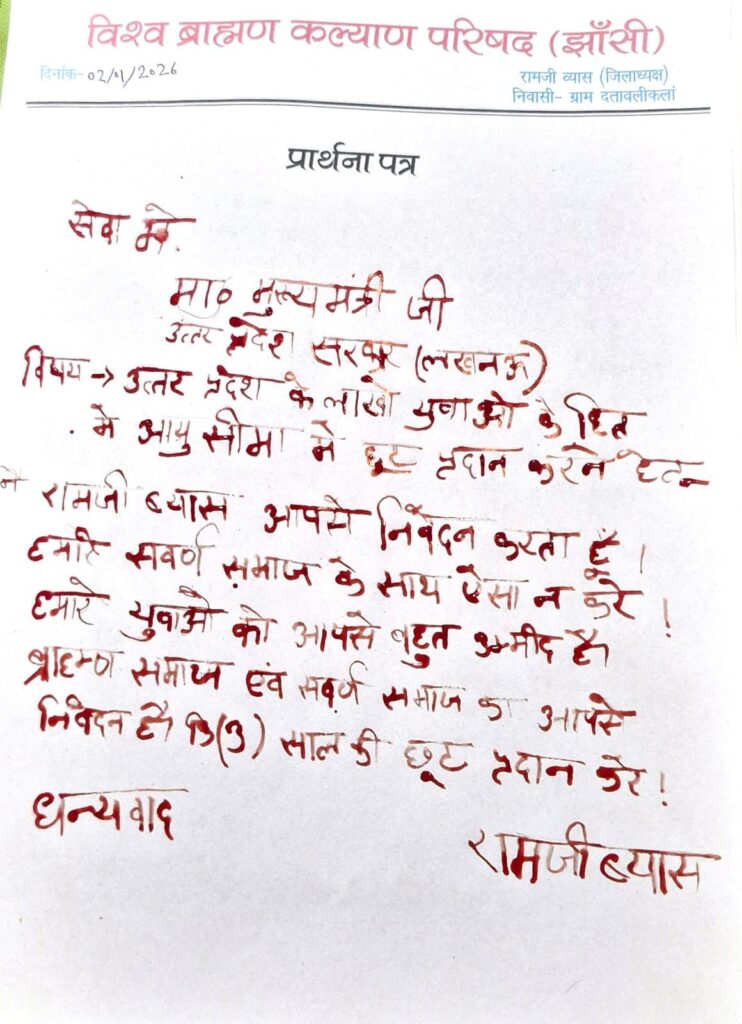 विश्व ब्राह्मण कल्याण परिषद (झाँसी)
दिनांक- 02/01/2026
रामजी व्यास (जिलाध्यक्ष)
निवासी- ग्राम दतावलीकलां
प्रार्थना पत्र
सेवा मे.
मा० मुख्यमंत्री जी
उत्तर प्रदेश सरकार (लखनऊ)
विषय → उत्तर प्रदेश के लाखो युवाओ के हित
मे आयु सीमा मे छूट प्रदान करने हेतु
मै रामजी ब्यास आपसे निवेदन करता हूँ।
हमारे सवर्ण समाज के साथ ऐसा न करे!
हमारे युवाओ को आपसे बहुत उम्मीद है।
ब्राहम्ण समाज एंव सवर्ण समाज का आपसे
निवेदन है कि (3) साल की छूट प्रदान करे!
धन्यवाद
रामजी ब्यास